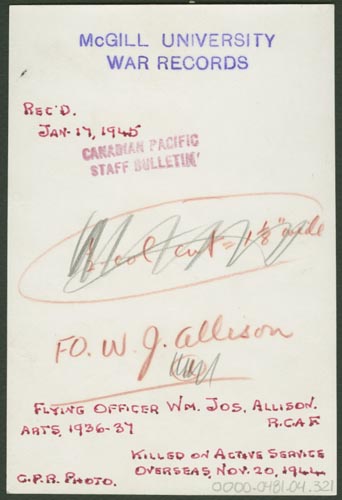 McGILL UNIVERSITY
WAR RECORDS
REC'D.
JAN-17, 1945
CANADIAN PACIFIC
STAFF BULLETIN
½ col cut = 1⅛" wide
FO. W. J. Allison
FLYING OFFICER WM. JOS. ALLISON.
ARTS, 1936-37 R.CAF
KILLED ON ACTIVE SERVICE
OVERSEAS, NOV. 20, 1944
C.P.R. PHOTO.
0000-0481.04.321